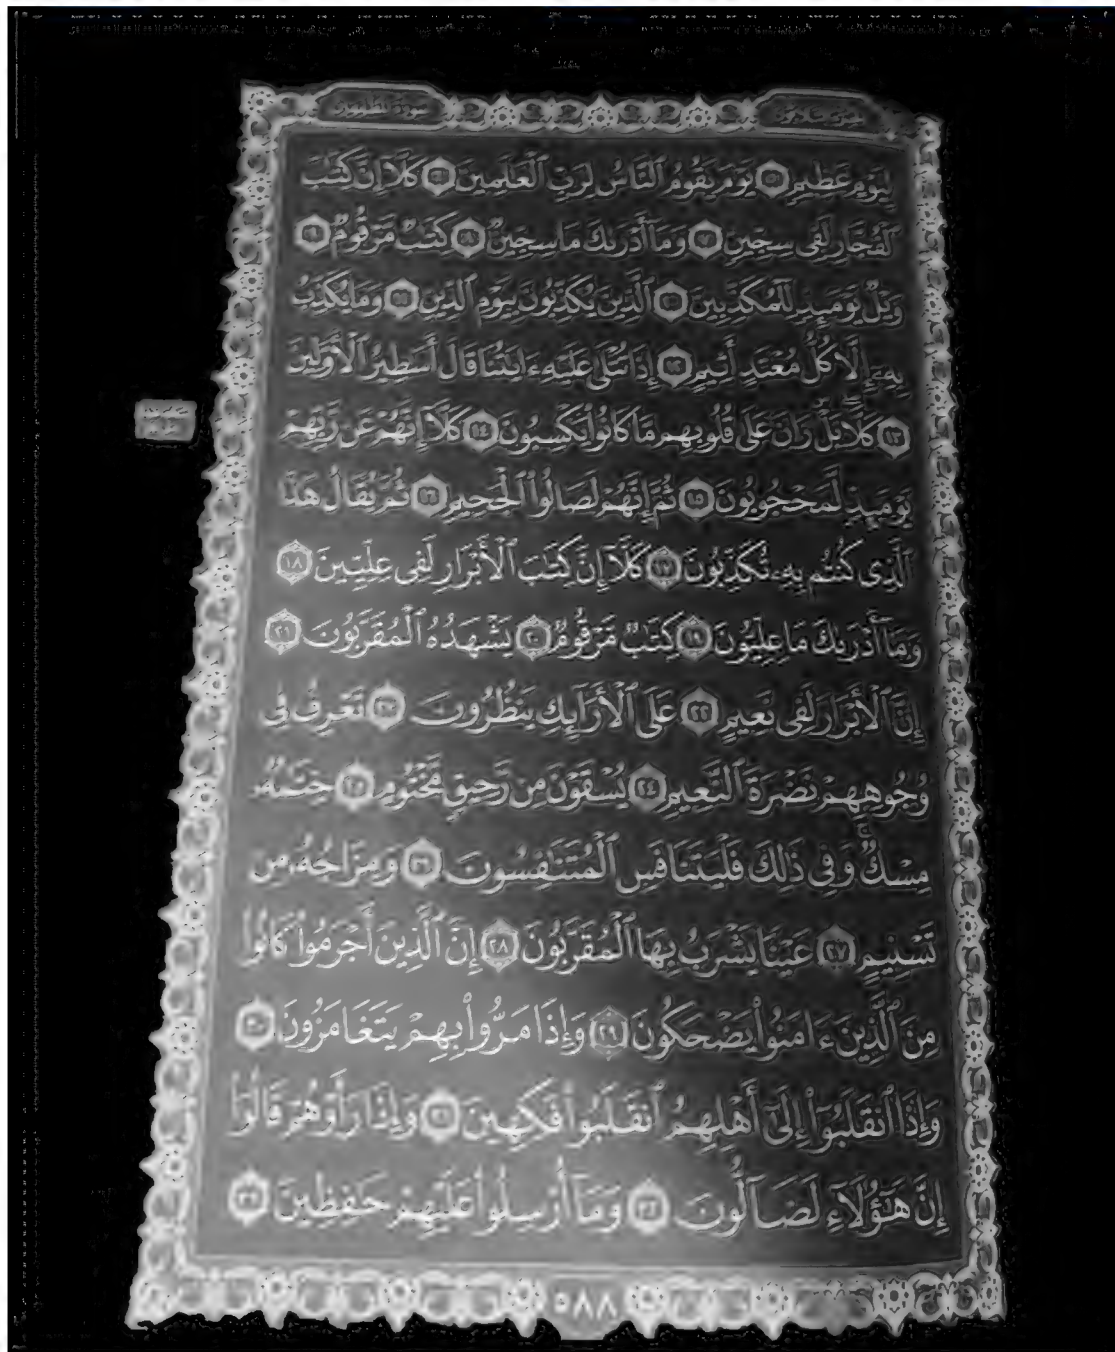 سورة المطففين
لِيَوْمٍ عَظِيمٍ ٥ يَوْمَ يَقُومُ ٱلنَّاسُ لِرَبِّ ٱلْعَٰلَمِينَ ٦ كَلَّآ إِنَّ كِتَٰبَ
ٱلْفُجَّارِ لَفِى سِجِّينٍ ٧ وَمَآ أَدْرَىٰكَ مَا سِجِّينٌ ٨ كِتَٰبٌ مَّرْقُومٌ ٩
وَيْلٌ يَوْمَئِذٍ لِّلْمُكَذِّبِينَ ١٠ ٱلَّذِينَ يُكَذِّبُونَ بِيَوْمِ ٱلدِّينِ ١١ وَمَا يُكَذِّبُ
بِهِۦٓ إِلَّا كُلُّ مُعْتَدٍ أَثِيمٍ ١٢ إِذَا تُتْلَىٰ عَلَيْهِ ءَايَٰتُنَا قَالَ أَسَٰطِيرُ ٱلْأَوَّلِينَ
١٣ كَلَّا ۖ بَلْ ۜ رَانَ عَلَىٰ قُلُوبِهِم مَّا كَانُوا۟ يَكْسِبُونَ ١٤ كَلَّآ إِنَّهُمْ عَن رَّبِّهِمْ
يَوْمَئِذٍ لَّمَحْجُوبُونَ ١٥ ثُمَّ إِنَّهُمْ لَصَالُوا۟ ٱلْجَحِيمِ ١٦ ثُمَّ يُقَالُ هَٰذَا
ٱلَّذِى كُنتُم بِهِۦ تُكَذِّبُونَ ١٧ كَلَّآ إِنَّ كِتَٰبَ ٱلْأَبْرَارِ لَفِى عِلِّيِّينَ ١٨
وَمَآ أَدْرَىٰكَ مَا عِلِّيُّونَ ١٩ كِتَٰبٌ مَّرْقُومٌ ٢٠ يَشْهَدُهُ ٱلْمُقَرَّبُونَ ٢١
إِنَّ ٱلْأَبْرَارَ لَفِى نَعِيمٍ ٢٢ عَلَى ٱلْأَرَآئِكِ يَنظُرُونَ ٢٣ تَعْرِفُ فِى
وُجُوهِهِمْ نَضْرَةَ ٱلنَّعِيمِ ٢٤ يُسْقَوْنَ مِن رَّحِيقٍ مَّخْتُومٍ ٢٥ خِتَٰمُهُۥ
مِسْكٌ ۚ وَفِى ذَٰلِكَ فَلْيَتَنَافَسِ ٱلْمُتَنَٰفِسُونَ ٢٦ وَمِزَاجُهُۥ مِن
تَسْنِيمٍ ٢٧ عَيْنًا يَشْرَبُ بِهَا ٱلْمُقَرَّبُونَ ٢٨ إِنَّ ٱلَّذِينَ أَجْرَمُوا۟ كَانُوا۟
مِنَ ٱلَّذِينَ ءَامَنُوا۟ يَضْحَكُونَ ٢٩ وَإِذَا مَرُّوا۟ بِهِمْ يَتَغَامَزُونَ ٣٠
وَإِذَا ٱنقَلَبُوٓا۟ إِلَىٰٓ أَهْلِهِمُ ٱنقَلَبُوا۟ فَكِهِينَ ٣١ وَإِذَا رَأَوْهُمْ قَالُوٓا۟
إِنَّ هَٰٓؤُلَآءِ لَضَآلُّونَ ٣٢ وَمَآ أُرْسِلُوا۟ عَلَيْهِمْ حَٰفِظِينَ ٣٣
٥٨٨